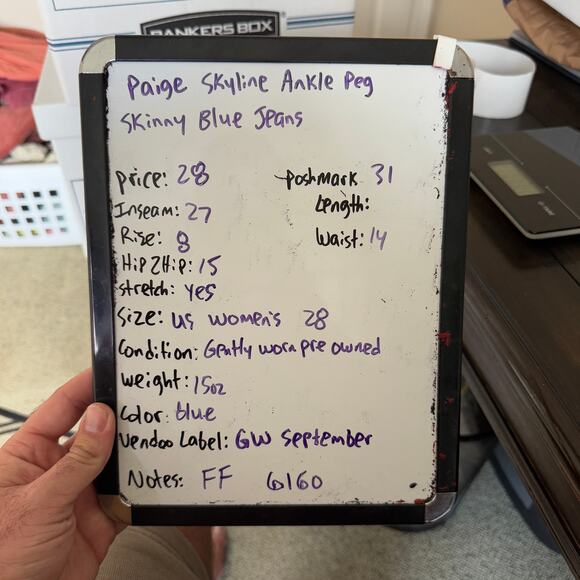 BANKERS BOX
Paige Skyline Ankle Peg
Skinny Blue Jeans
Price: 28 Poshmark 31
Inseam: 27 Length:
Rise: 8 Waist: 14
Hip 2 Hip: 15
Stretch: yes
Size: US women's 28
Condition: Gently worn pre owned
Weight: 15oz
Color: blue
Vendoo Label: GW September
Notes: FF 6160